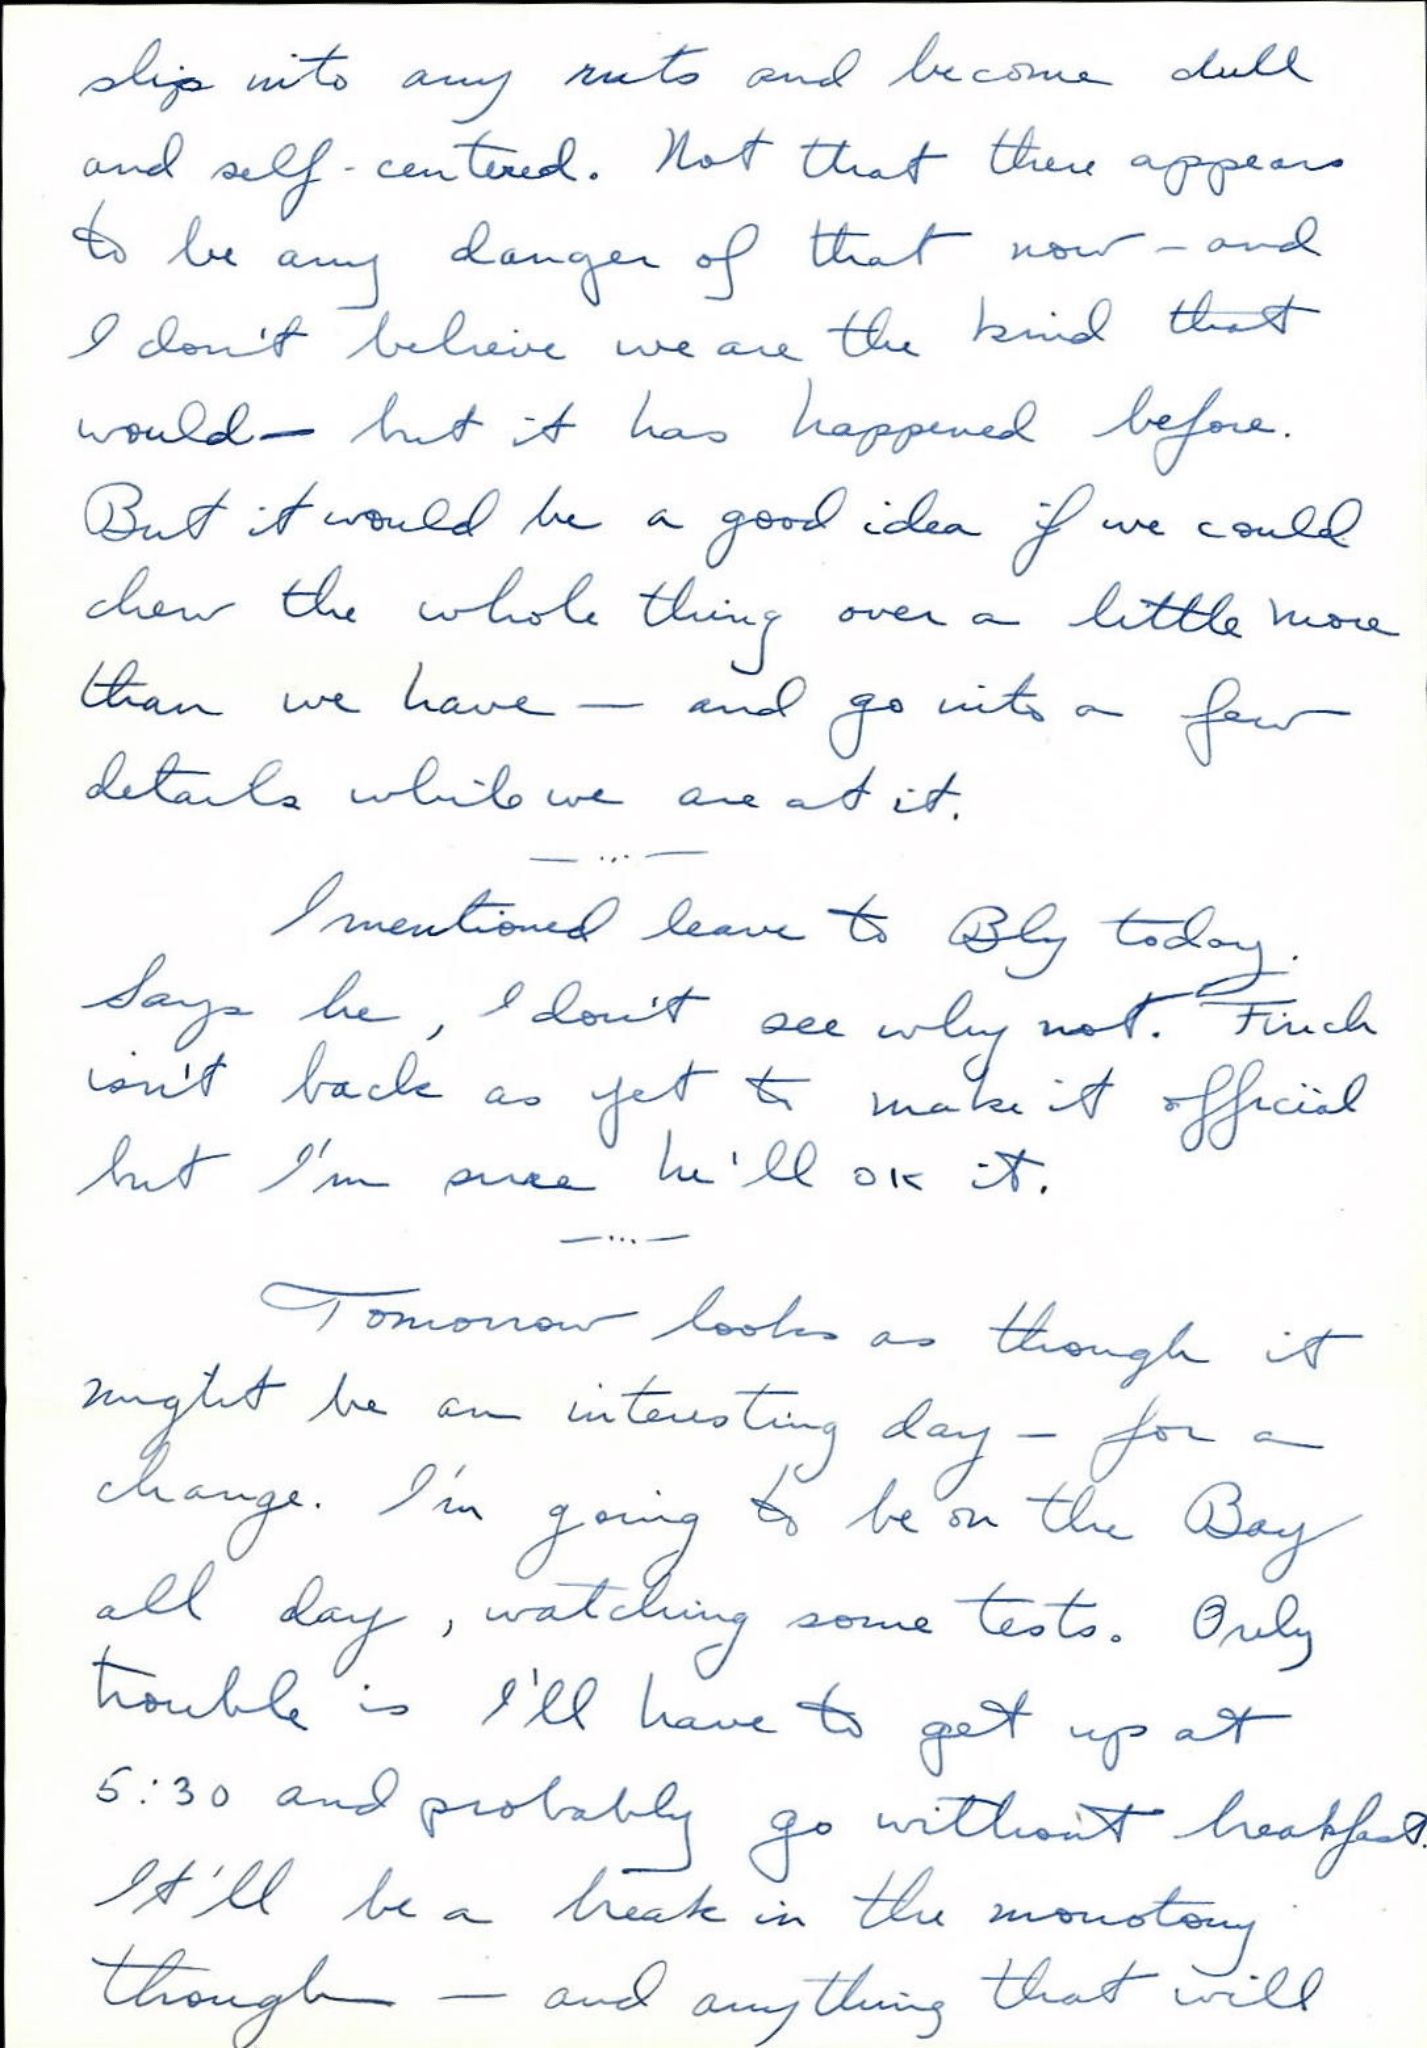 slip into any ruts and become dull
and self-centered. Not that there appears
to be any danger of that now – and
I don't believe we are the kind that
would — but it has happened before.
But it would be a good idea if we could
chew the whole thing over a little more
than we have — and go into a few
details while we are at it.
— ... —
I mentioned leave to Bly today.
Says he, I don't see why not. Finch
isn't back as yet to make it official
but I'm sure he'll OK it.
— ... —
Tomorrow looks as though it
might be an interesting day – for a
change. I'm going to be on the Bay
all day, watching some tests. Only
trouble is I'll have to get up at
5:30 and probably go without breakfast.
It'll be a break in the monotony
though — and anything that will